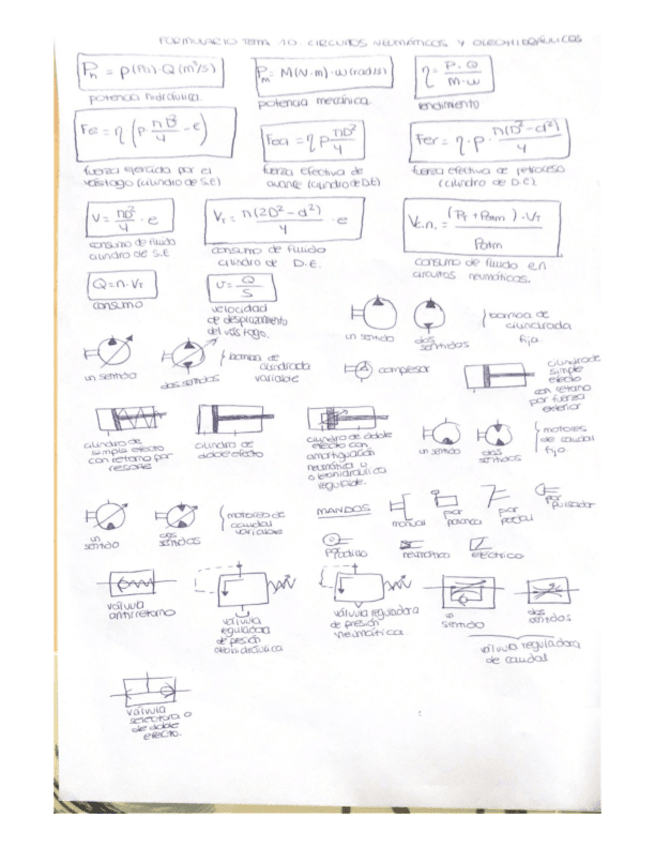 FORMULARIO TEMA 10. CIRCUITOS NEUMÁTICOS Y OLEOHIDRÁULICOS
Ph = p(Pa) · Q(m³/s)
Pm = M(N·m)·ω(rad/s)
η = P·Q / M·ω
potencia hidráulica.
potencia mecánica.
rendimiento
Fe = η (P · πD²/4 - e)
Fea = η P πD²/4
Fer = η · P · π(D²-d²)/4
fuerza ejercida por el
vástago (cilindro de S.E)
fuerza efectiva de
avance (cilindro de D.E)
fuerza efectiva de retroceso
(cilindro de D.E).
V = πD²/4 · e
VT = π(2D²-d²)/4 · e
Vc.n. = (PT + Patm)·VT / Patm
consumo de fluido
cilindro de S.E
consumo de fluido
cilindro de D.E.
consumo de fluido en
circuitos neumáticos.
Q=n·VT
consumo
v = Q/S
velocidad
de desplazamiento
del vástago.
un sentido
dos sentidos
bomba de
cilindrada
fija.
un sentido
dos sentidos
bomba de
cilindrada
variable
compresor
cilindro de
simple
efecto
con retorno
por fuerza
exterior
cilindro de
simple efecto
con retorno por
resorte
cilindro de
doble efecto
cilindro de doble
efecto con
amortiguación
neumática u
oleohidráulica
regulable.
un sentido
dos
sentidos
motores
de caudal
fijo.
un
sentido
dos
sentidos
motores de
caudal
variable
MANDOS
manual
por
palanca
por
pedal
por
pulsador
rodillo
neumático
eléctrico
válvula
antirretorno
válvula
reguladora
de presión
oleohidráulica
válvula reguladora
de presión
neumática
un
sentido
dos
sentidos
válvula reguladora
de caudal
válvula
selectora o
de doble
efecto.